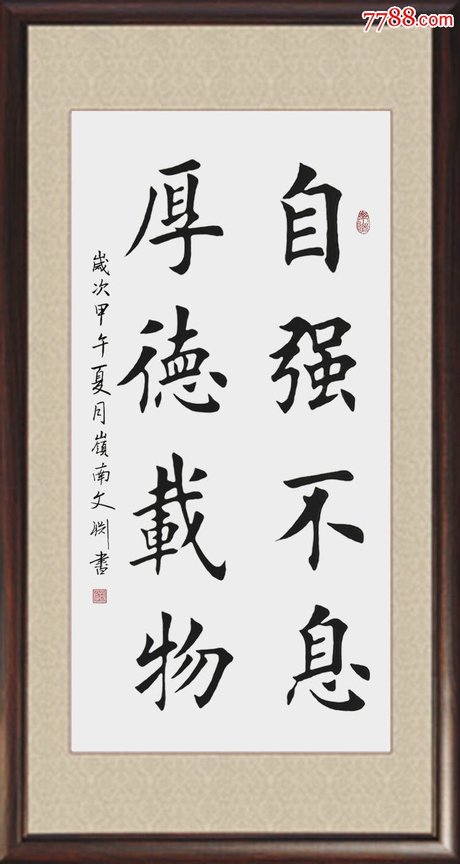 7788.com
自强不息
厚德載物
歲次甲午夏月嶺南文刚書